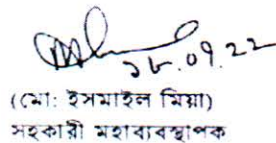 ১৮.০৭.২২
(মো: ইসমাইল মিয়া)
সহকারী মহাব্যবস্থাপক